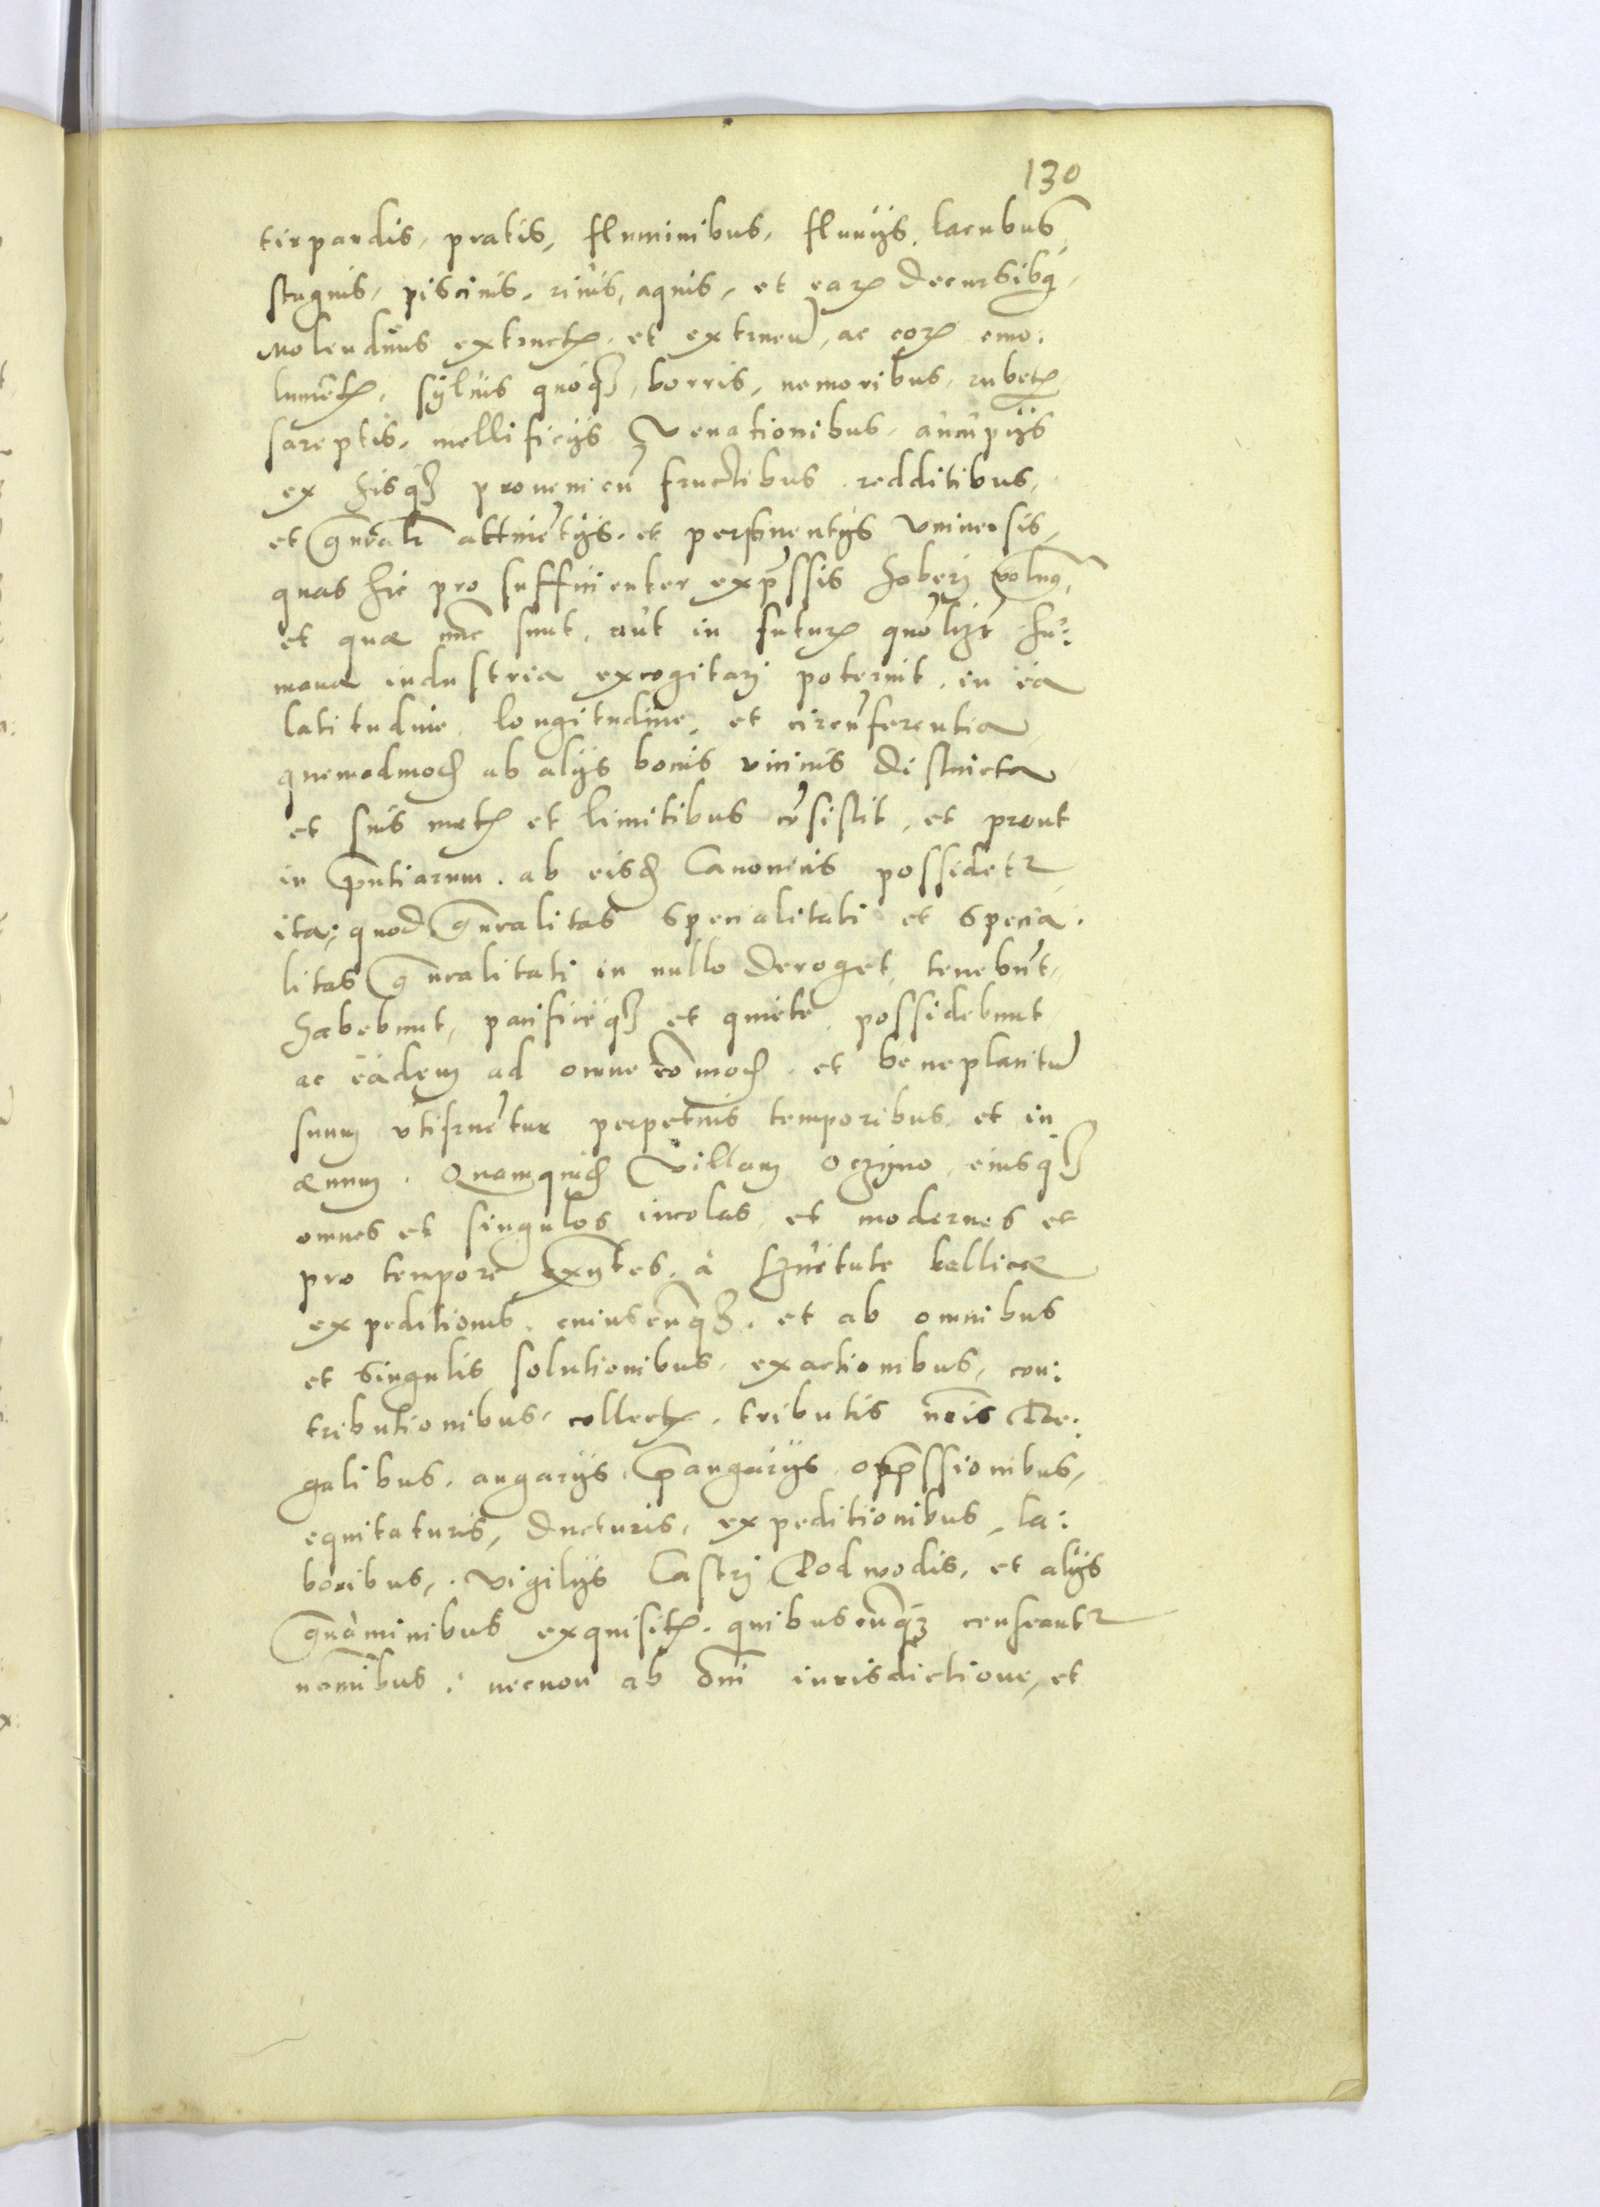 130
tirpandis, pratis, fluminibus, fluuijs, lacubus,
stagnis, piscinis, riuis, aquis, et earꝝ decursibꝯ,
Molendinis extructꝭ, et extrueñ, ac eorꝝ emo:
lumẽtꝭ, syluis quóqꝫ, borris, nemoribus, rubetꝭ
sareptis, mellificijs Venationibus, aucupijs
ex hisqꝫ prouenieñ fructibus redditibus,
et gñrali attinẽtijs, et pertinentijs vniuersis,
quas hic pro sufficienter exp̃ssis haberj volum9,
et quæ nũc sunt, aut in futurꝝ quõlizt hu:
mana industria excogitarj poterint, in ea
latitudine, longitudine, et circũferentia,
quemadmod ab alijs bonis vicinis distincta
et suis metꝭ et limitibus cõsistit, et prout
in p̃ntiarum ab eisd Canonicis possidetr
ita: quod gñralitas specialitati et specia.
litas gñralitati in nullo deroget, tenebũt,
habebunt, pacificeqꝫ et quiete possidebunt
ac eadem ad omne cõmod et beneplacitũ
suum vtifruẽtur perpetuis temporibus et in
æuum. Quamquid Villam Oczyno, eiusqꝫ
omnes et singulos incolas et modernos et
pro tempore exñtes, à seruitute bellicæ
expeditionis cuiuscũqꝫ, et ab omnibus
et singulis solutionibus, exactionibus, con:
tributionibus, collectꝭ, tributis nr̃is Re:
galibus, angarijs, p̃angarijs oppr̃ssionibus,
equitaturis, ducturis, expeditionibus, la:
boribus, vigilijs Castrj Podwodis, et alijs
grauaminibus exquisitꝭ, quibuscũqꝫ censeantr
nomĩbus: necnon ab om̃i iurisdictione, et